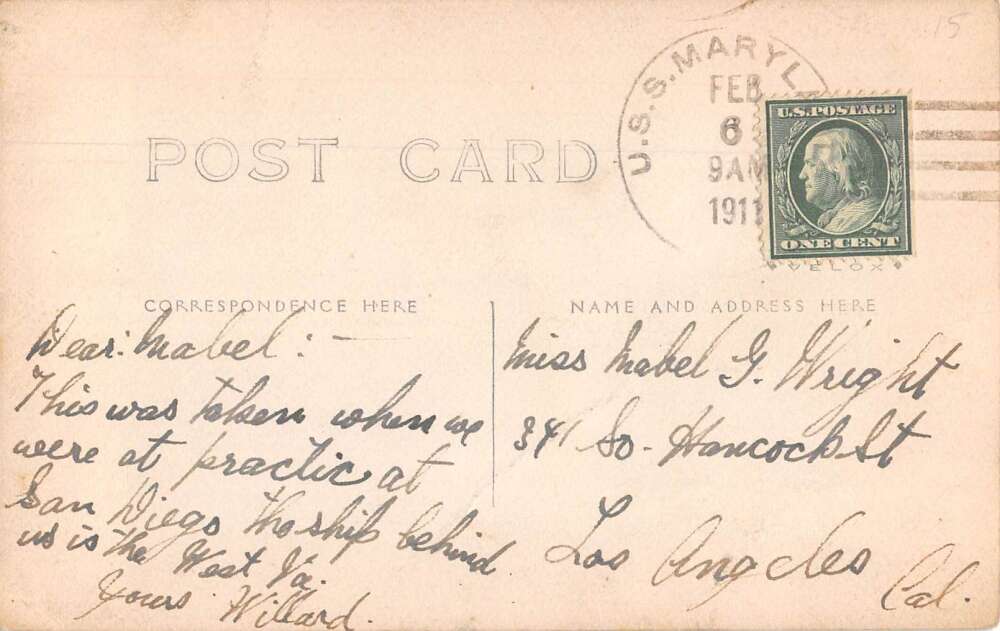 15
U.S.S. MARYL
FEB
6
9AM
1911
U.S. POSTAGE
ONE CENT
VELOX
POST CARD
CORRESPONDENCE HERE
Dear: Mabel: —
This was taken when we
were at practic at
San Diego the ship behind
us is the West Va.
Yours Willard.
NAME AND ADDRESS HERE
Miss Mabel G. Wright
341 So. Hancock St
Los Angeles
Cal.